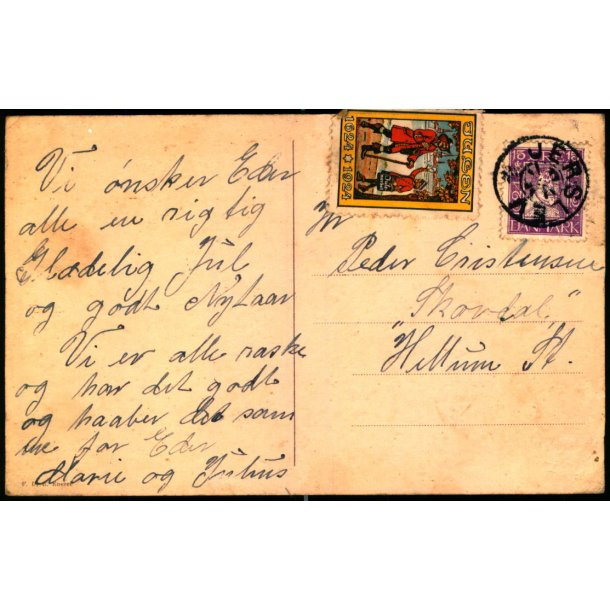 Vi ønsker Eder
alle en rigtig
Glædelig Jul
og godt Nytaar
Vi er alle raske
og har det godt
og haaber det sam
me for Eder
Marie og Julius
1624 ★ 1924
JERSLEV
DANMARK
Hr
Peder Cristensen
"Skovdal"
Hellum St.